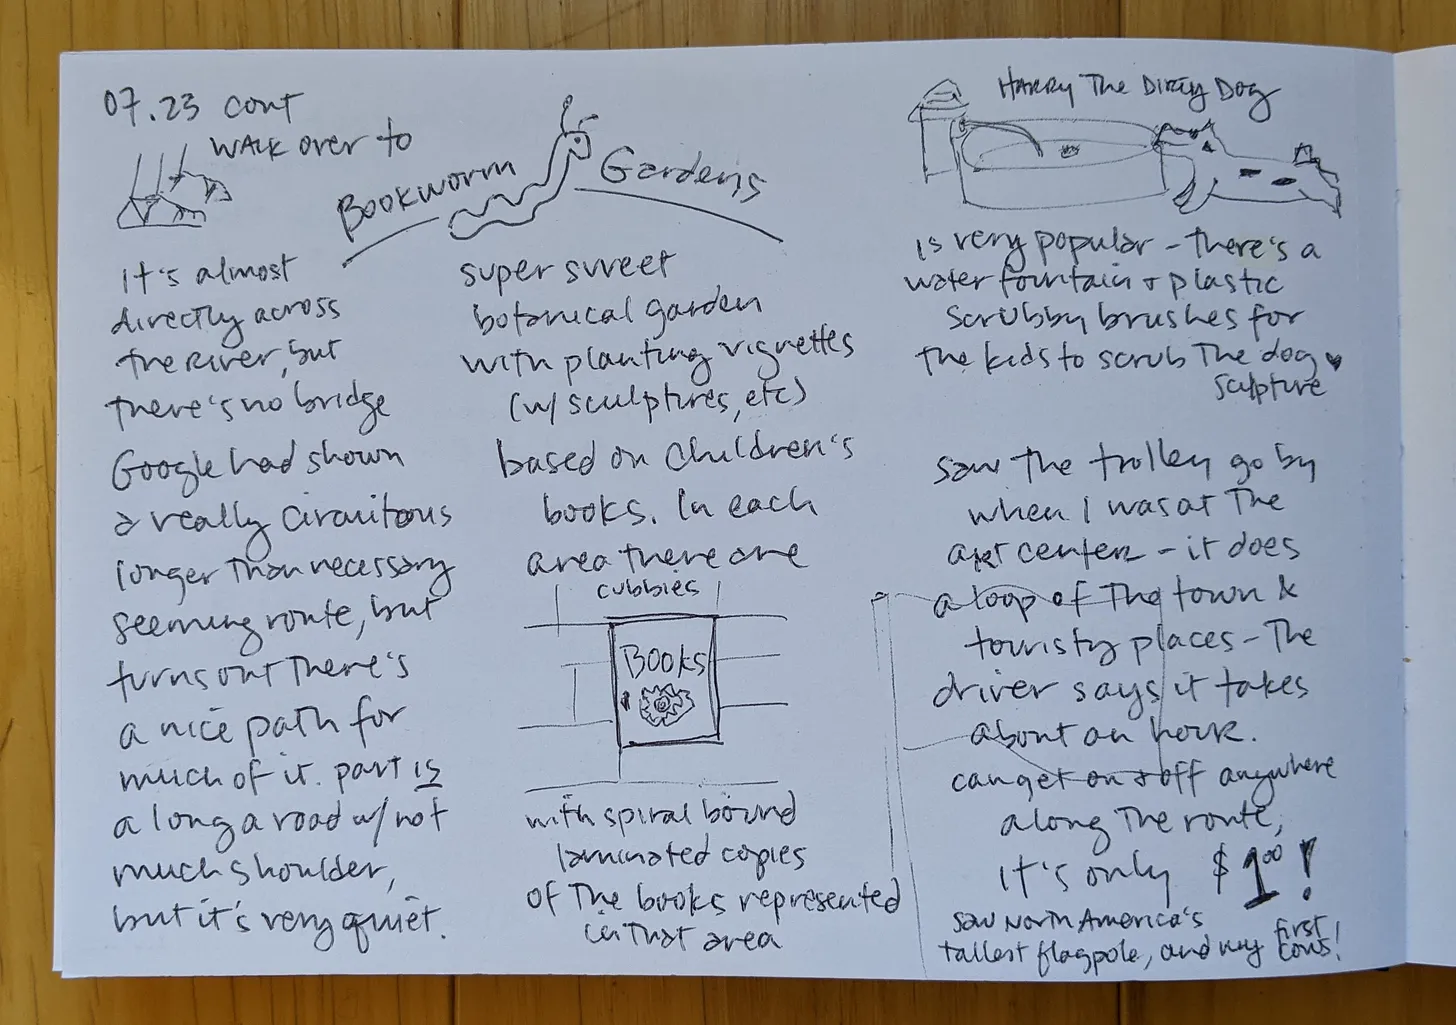 07.23 cont
WALK over to
Bookworm Gardens
it's almost
directly across
the river, but
there's no bridge
Google had shown
a really circuitous
longer than necessary
seeming route, but
turns out there's
a nice path for
much of it. part is
a long a road w/ not
much shoulder,
but it's very quiet.
super sweet
botanical garden
with planting vignettes
(w/ sculptures, etc)
based on children's
books. In each
area there are
cubbies
BOOKS
with spiral bound
laminated copies
of the books represented
in that area
HARRY THE DIRTY DOG
is very popular - there's a
water fountain + plastic
scrubby brushes for
the kids to scrub the dog ♥
sculpture
saw the trolley go by
when I was at the
art center - it does
a loop of the town &
touristy places - the
driver says it takes
about an hour.
can get on + off anywhere
along the route,
it's only $1.00!
saw North America's
tallest flagpole, and my first cows!